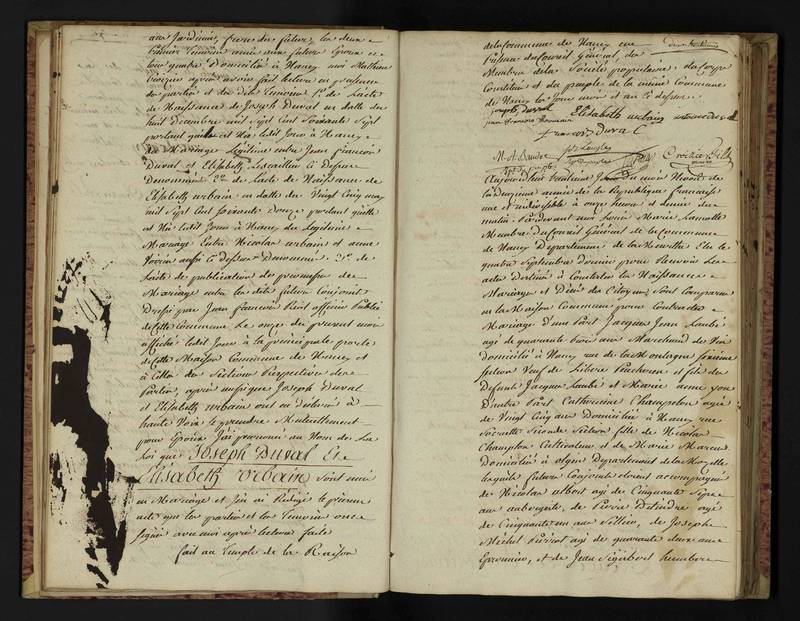 aux Jardiniers, frere du futur, les deux
premiers Temoins amis aux futurs Epoux et
tous quatre Domiciliés à Nancy moi Mathieu
après avoir fait lecture en presence
des parties et des dits Temoins 1.° de l'acte
de Naissance de Joseph Duval en datte du
huit Decembre mil Sept Cent Soixante Sept
portant qu'il est Né ledit Jour à Nancy
du Mariage Legitime entre Jean François
Duval et Elisabeth Lescaillon Ci Dessus
Denommés 2.° de l'acte de Naissance de
Elisabeth urbain en datte du Vingt Cinq may
mil Sept Cent Soixante Douze portant qu'elle
est Née ledit Jour à Nancy du Legitime
Mariage Entre Nicolas urbain et anne
Voirin aussi Ci Dessus Denommés. 3.° de
l'acte de publication de promesses de
Mariage entre les dits futurs Conjoints
Dressé par Jean François officier Public
de cette Commune Le onze du present mois
affiché ledit Jour à la principale porte
de cette Maison Commune de Nancy et
à Celles des Sections Respectives des
Parties, après aussi que Joseph Duval
et Elisabeth urbain ont eu déclaré à
haute Voix se prendre Mutuellement
pour Epoux J'ai prononcé au Nom de La
Loi que Joseph Duval Et
Elisabeth Urbain Sont unis
en Mariage et J'ai Redigé le present
acte que les parties et les Temoins ont
Signé avec moi après lecture faite
fait au Temple de la Raison
de la Commune de Nancy en
présence du Conseil Général, des
Membres de la Société populaire, du Corps
Constitué et du peuple de la même Commune
de Nancy les Jour mois et an Ci dessus.
joseph duval Elisabeth urbain
jean françois
françois Duval
Aujourd'hui trentieme Jour du mois Nivose de
la deuxieme année de la Republique française
une et indivisible à onze heures et demie du
matin. Pardevant moi Louis Marie Lamotte
Membre du Conseil Général de la Commune
de Nancy Departement de la Meurthe Elu le
quatre Septembre dernier pour Recevoir Les
actes Destinés à Constater les Naissances
Mariages et Décès des Citoyens, Sont Comparus
en la Maison Commune pour Contracter
Mariage d'une Part Jacques Jean Laubé
agé de quarante trois ans Marchand de Vin
Domicilié à Nancy rue de la Montagne
Section Veuf de Libaire et fils de
Defunt Jacques Laubé et Marie anne
D'autre Part Catherine Champelon agée
de Vingt Cinq ans Domiciliée à Nancy rue
Socratte Seconde Section fille de Nicolas
Champlon Cultivateur et de Marie
Domicilié à Departement de la Mozelle
lesquels futurs Conjoints étoient accompagnés
de Nicolas albert agé de Cinquante Sept
ans aubergiste, de Pierre agé
de Cinquante un ans Sellier, de Joseph
Michel Pierrot agé de quarante deux ans
Epronnier, et de Jean Sigisbert humbert